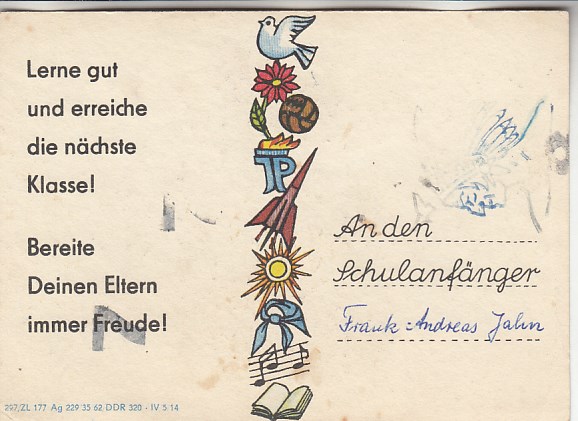 Lerne gut
und erreiche
die nächste
Klasse!
Bereite
Deinen Eltern
immer Freude!
JP
An den
Schulanfänger
Frank-Andreas Jahn
297/ZL 177 Ag 229 35 62 DDR 320 - IV 5 14